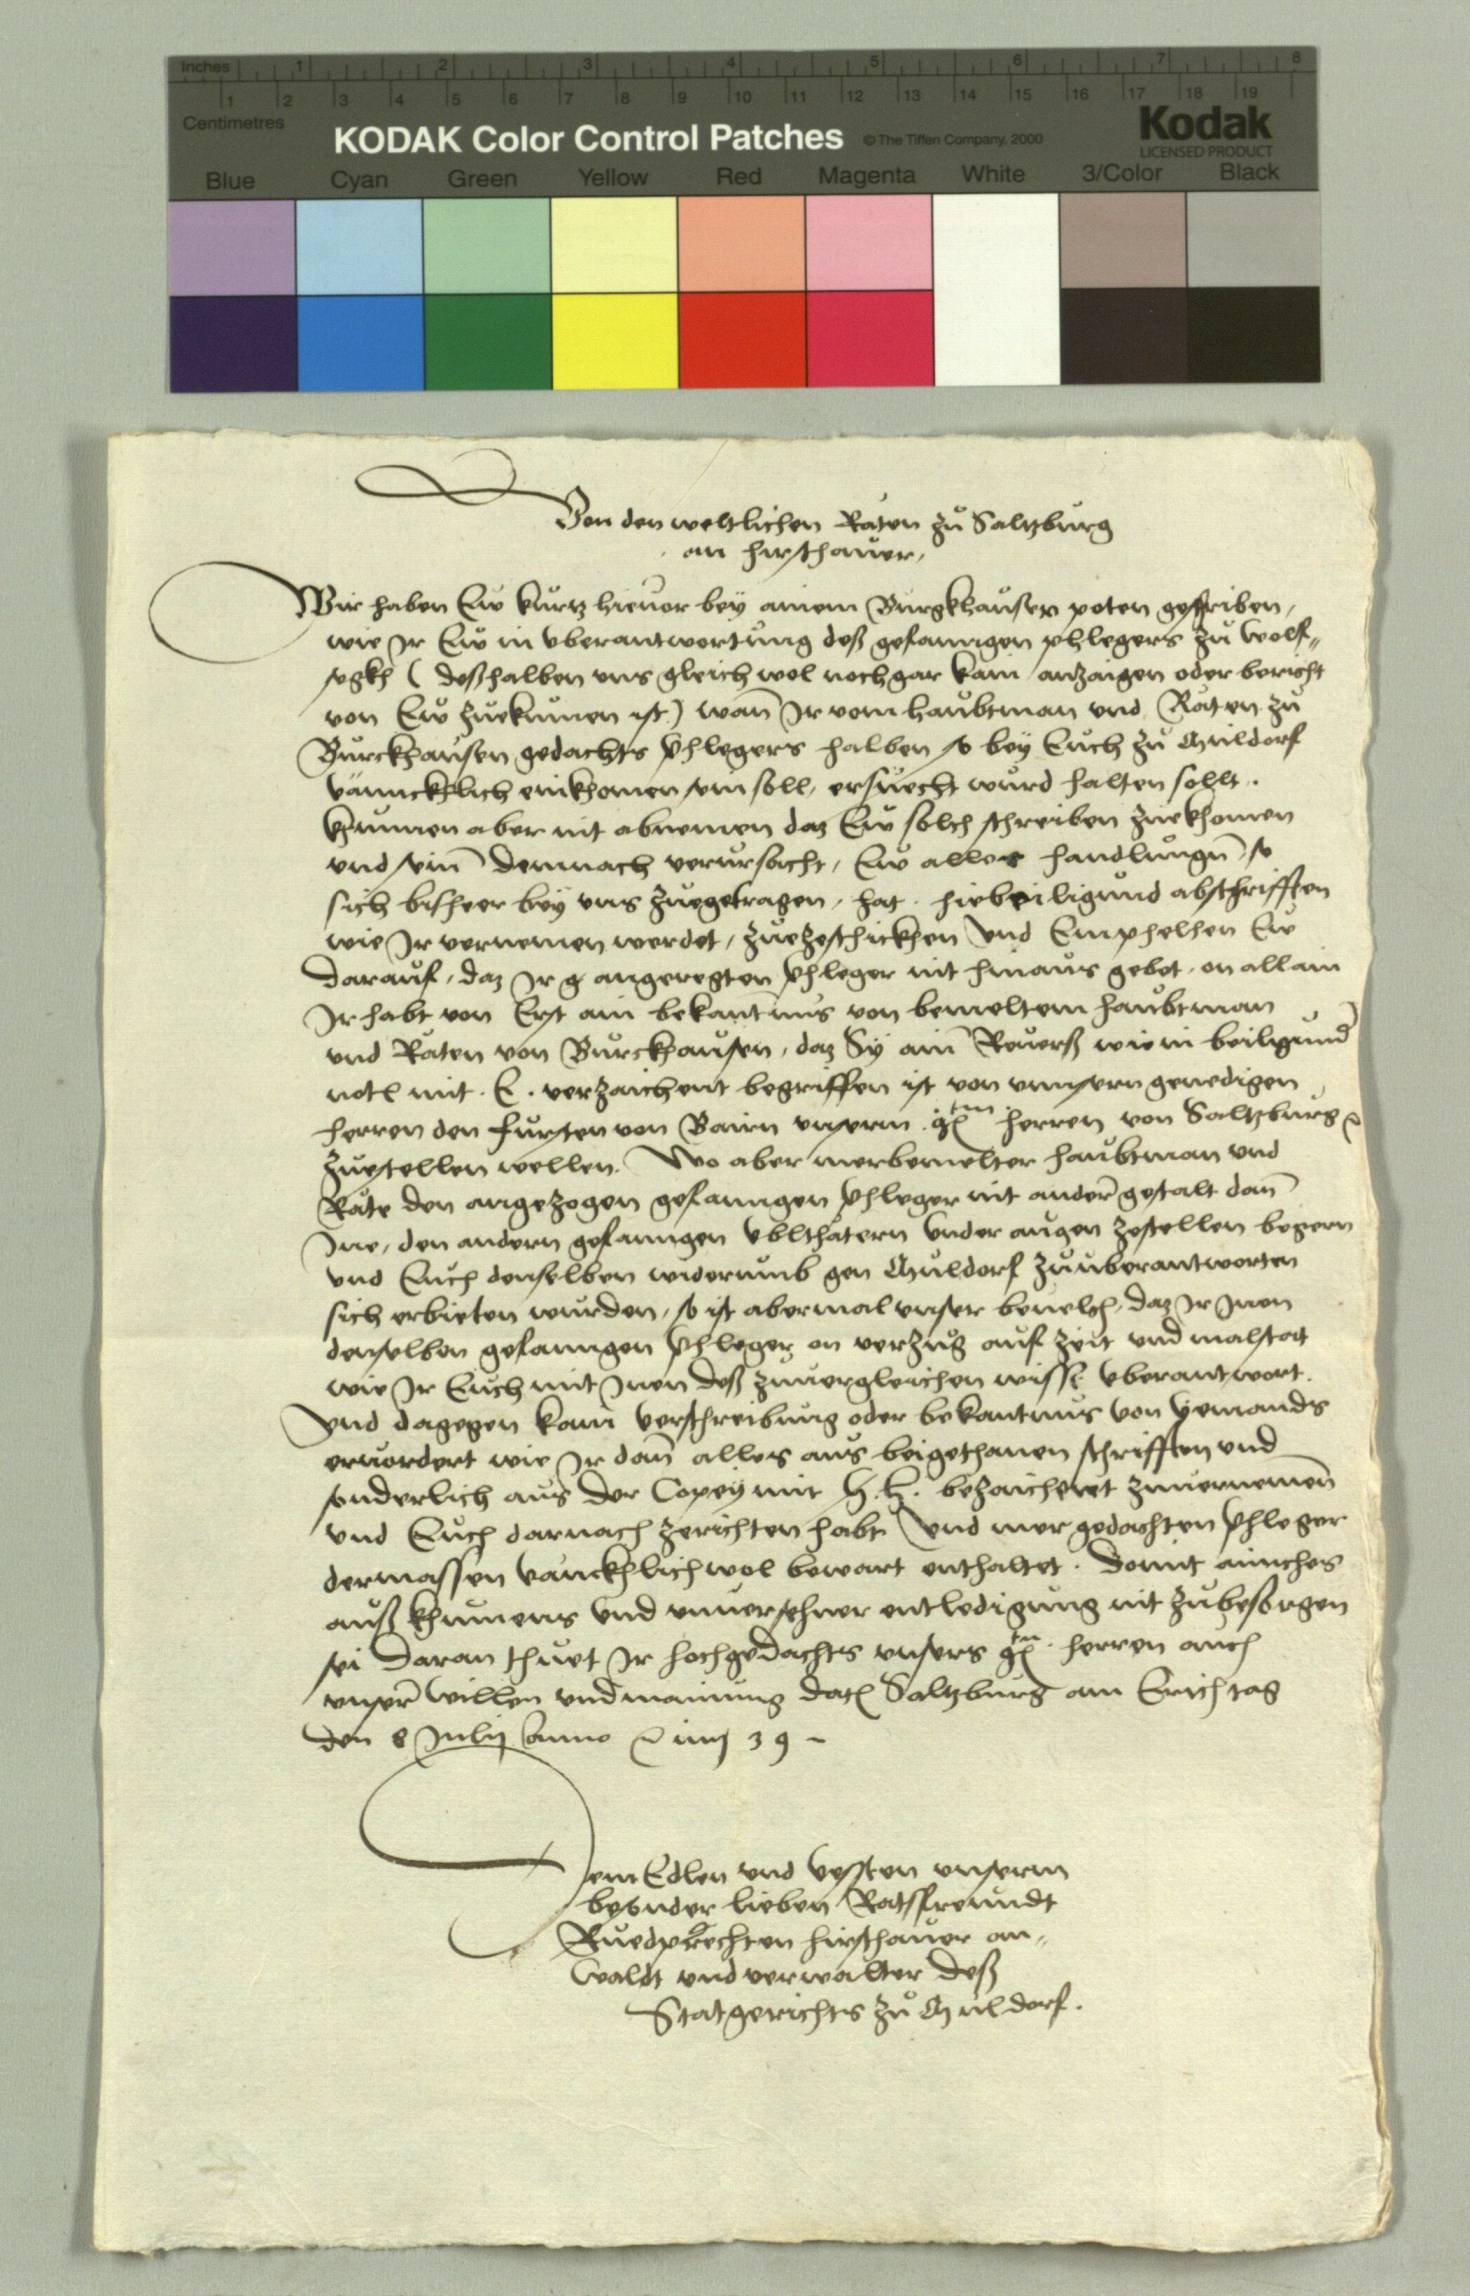 Inches 1 2 3 4 5 6 7 8
1 2 3 4 5 6 7 8 9 10 11 12 13 14 15 16 17 18 19
Centimetres
KODAK Color Control Patches © The Tiffen Company, 2000 Kodak
LICENSED PRODUCT
Blue Cyan Green Yellow Red Magenta White 3/Color Black
Von den weltlichen Räten zů Saltzburg
an hirsthauer,
Wir haben Eŵ kurtz hieuor bey ainem Burgkhauser poten geschriben,
wie Ir Eŵ in vberantwortung deß gefanngen phlegers zů Wolf„
segkh ( deßhalben vns gleich wol noch gar kain anzaigen oder bericht
von Eŵ zuekumen ist) wan̄ Ir vom haubtman vnd Räten zů
Burckhausen gedachts phlegers halben so bey Euch zů Muldorf
vännckhlich einkhomen sein soll, ersuecht wurd halten sollt.
khunnen aber nit abnemen daz Eŵ solch schreiben zuekhomen
vnd sein̄ demnach verursacht, Eŵ aller handlungn̄ so
sich bisheer bey vns zuegetragen, hat hiebeiligund abschrifften
wie Ir vernemen werdet, zuezeschickhen Vnd Emphelhen Eŵ
darauf, daz Ir angeregten phleger nit hinaus gebet, on allain
Ir habt von Erst ain bekantnus von bemeltem haubtman
vnd Räten von Burckhausen, daz Sy ain̄ Reuerß wie in beiligund̄
notl mit . E . verzaichent begriffen ist von vnnsern genedigen
herren den fursten von Bairn vnserm gstn herren von Saltzburg
zuestellen wellen. Wo aber merbemelter haubtman vnd
Räte den angezogen gefanngen phleger nit ander̄ gestalt dan̄
Ine, den andern gefanngen vblthätern vnder augen zestellen begern
vnd Euch denselben widerumb gen Muldorf zuuberantworten
sich erbieten wurden, so ist abermal vnser beuelch, daz Ir Inen
denselben gefanngen phleger on verzug auf zeit vnd malstat
wie Ir Euch mit Inen deß zuuergleichen wisst vberantwort.
Vnd dagegen kain verschreibung oder bekantnus von yemands
eruordert wie Ir dan̄ alles aus beigethanen schrifften vnd
sonderlich aus der Copey mit bezaichent zuuernemen̄
vnd Euch darnach zerichten habt Vnd mer gedachten phleger
dermassen vänckhlich wol bewart enthaltet. Domit ainiches
auß khumens vnd vnuersehner entledigung nit zubesorgen
sei Daran thuet Ir hochgedachts vnsers gstn herren auch
vnser̄ willen vnd mainung datl Saltzburg am Erichtag
den 8 Julij Anno 39 -
Dem Edlen vnd vessten vnserm
besonder lieben Ratsfreundt
Ruedprechten hirsthauer an„
waldt vnd verwalter deß
Statgerichts zů Muldorf.